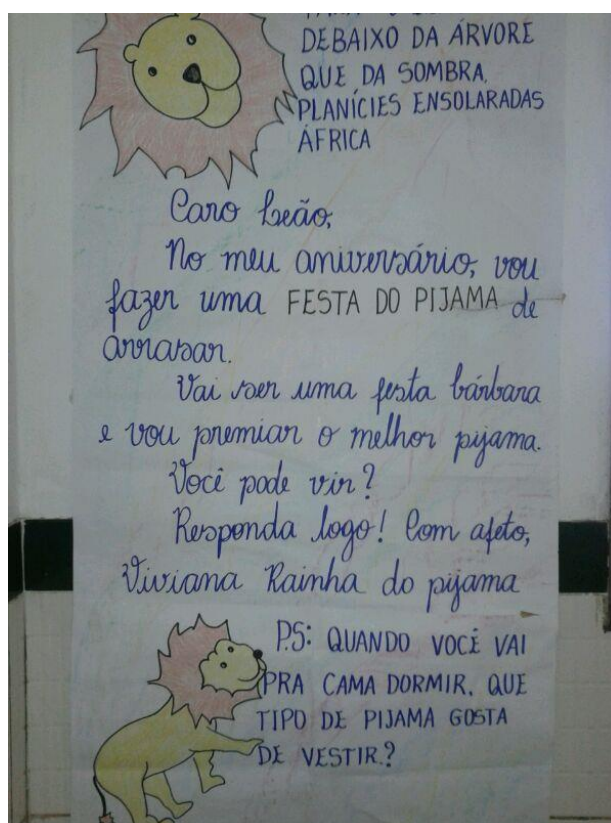 DEBAIXO DA ÁRVORE
QUE DA SOMBRA.
PLANÍCIES ENSOLARADAS
ÁFRICA
Caro Leão,
No meu aniversário, vou
fazer uma FESTA DO PIJAMA de
arrasar.
Vai ser uma festa bárbara
e vou premiar o melhor pijama.
Você pode vir?
Responda logo! Com afeto,
Viviana Rainha do pijama
P.S: QUANDO VOCÊ VAI
PRA CAMA DORMIR, QUE
TIPO DE PIJAMA GOSTA
DE VESTIR.?